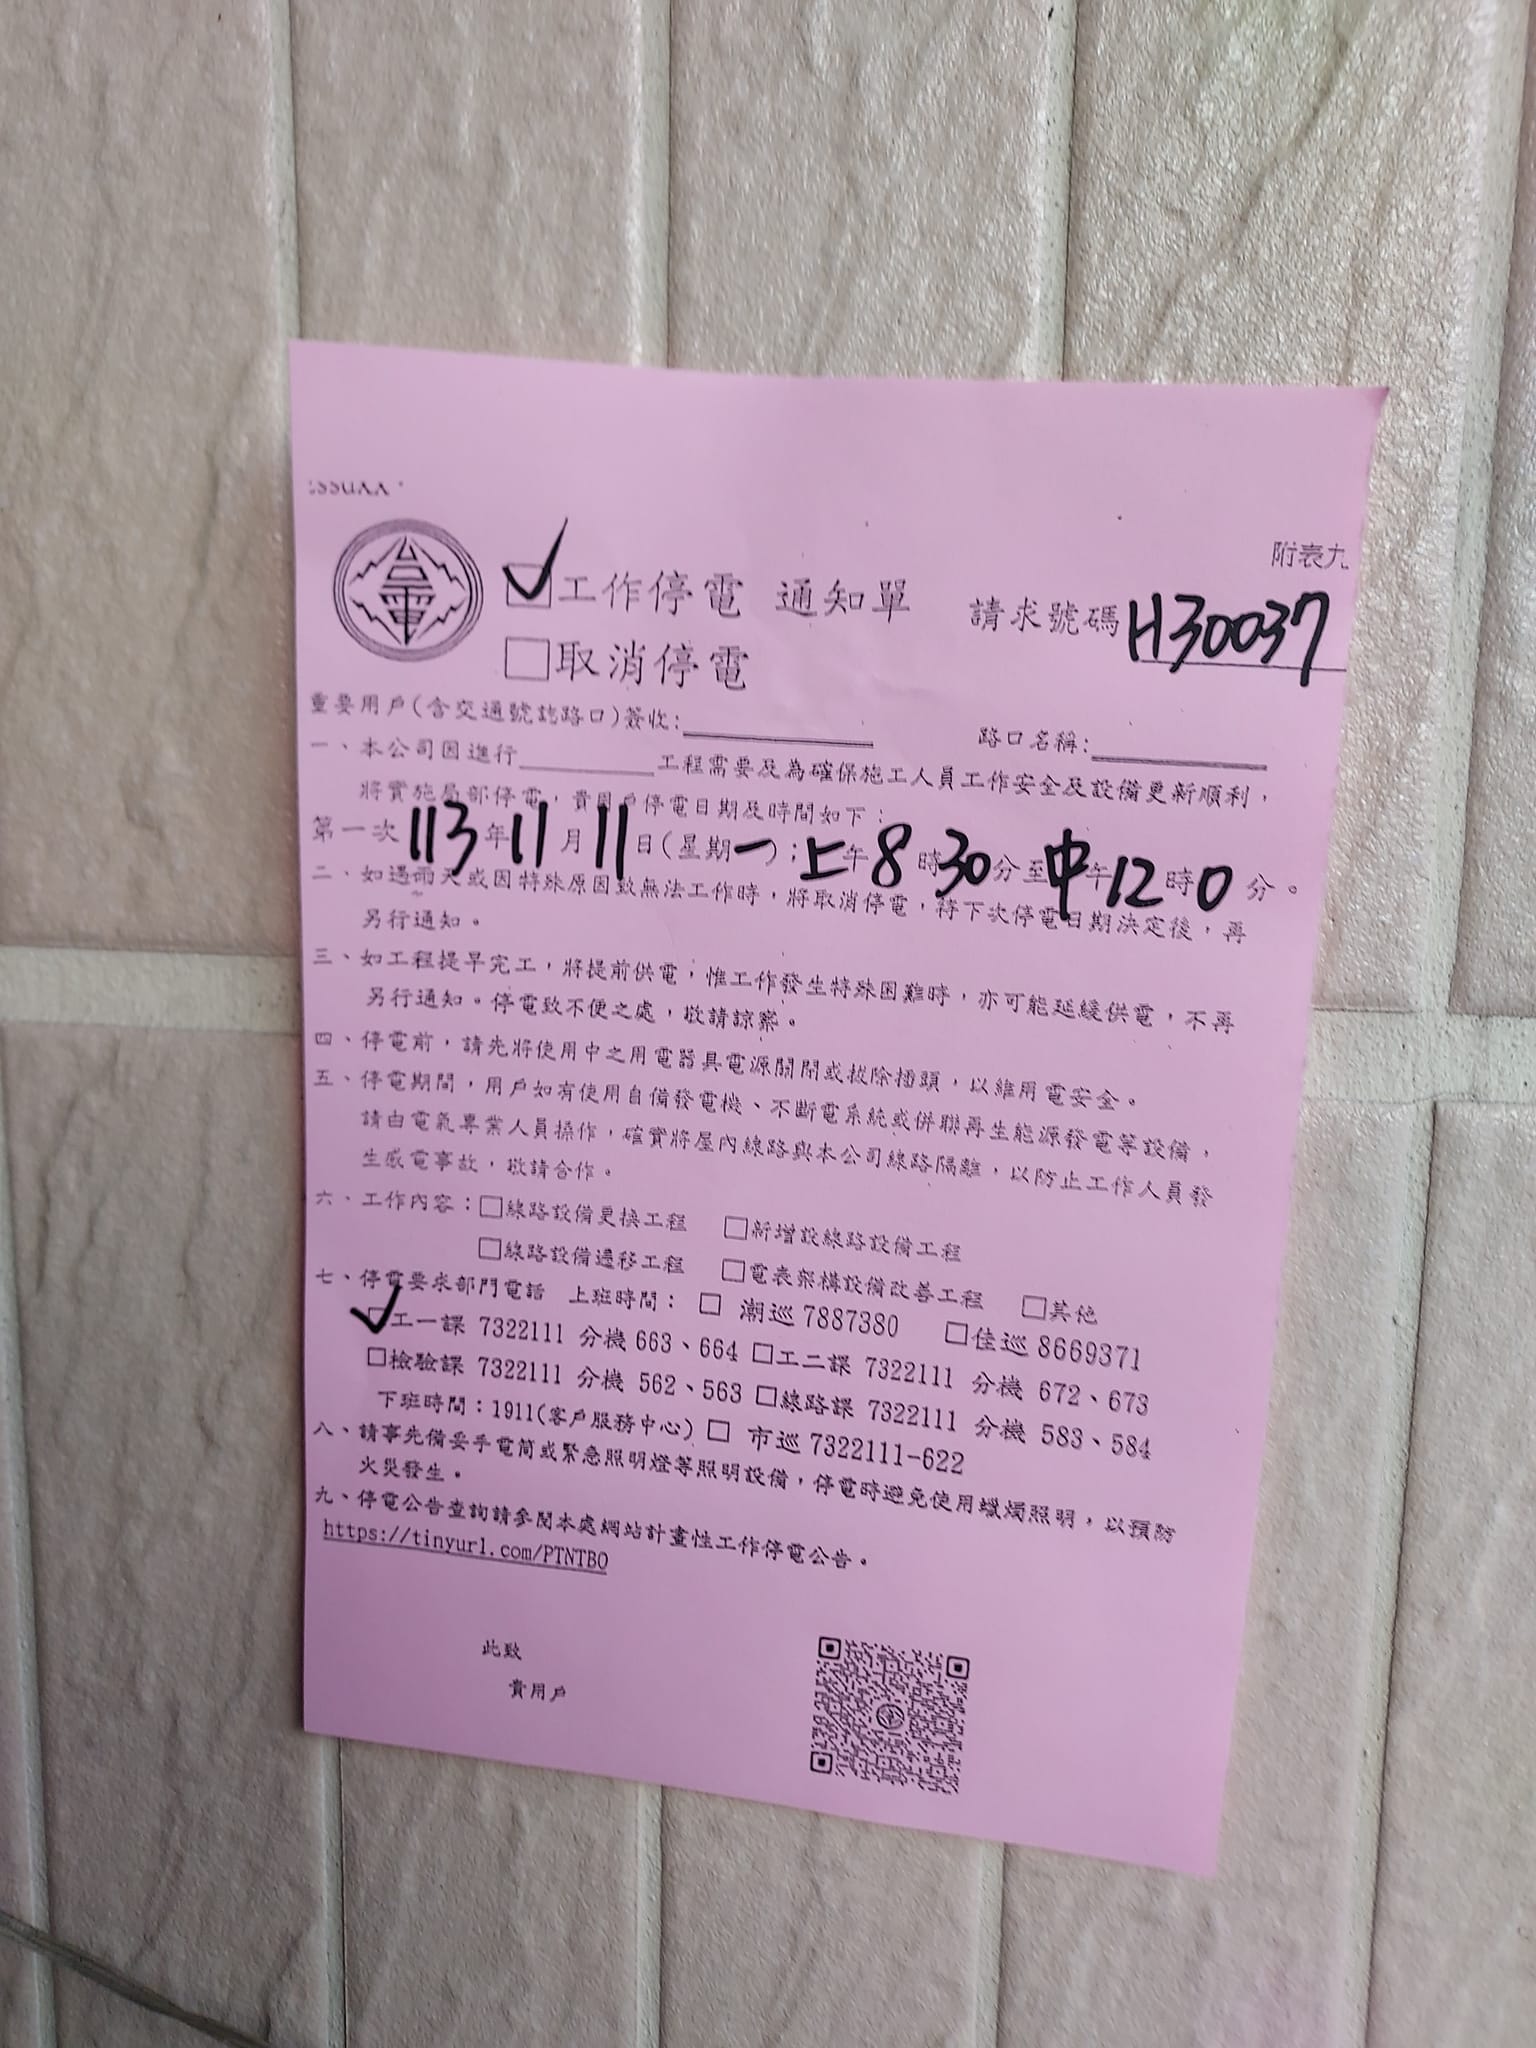 附表九
台電
工作停電 通知單 請求號碼H30037
取消停電
重要用戶(含交通號誌路口)簽收: 路口名稱:
一、本公司因進行 工程需要及為確保施工人員工作安全及設備更新順利，
將實施局部停電，貴用戶停電日期及時間如下：
第一次113年11月11日(星期一)；上午8時30分至中午12時0分。
二、如遇雨天或因特殊原因致無法工作時，將取消停電，待下次停電日期決定後，再
另行通知。
三、如工程提早完工，將提前供電；惟工作發生特殊困難時，亦可能延緩供電，不再
另行通知。停電致不便之處，敬請諒察。
四、停電前，請先將使用中之用電器具電源關閉或拔除插頭，以維用電安全。
五、停電期間，用戶如有使用自備發電機、不斷電系統或併聯再生能源發電等設備，
請由電氣專業人員操作，確實將屋內線路與本公司線路隔離，以防止工作人員發
生感電事故，敬請合作。
六、工作內容：□線路設備更換工程 □新增設線路設備工程
□線路設備遷移工程 □電表架構設備改善工程 □其他
七、停電要求部門電話 上班時間： □ 潮巡 7887380 □佳巡 8669371
工一課 7322111 分機 663、664 □工二課 7322111 分機 672、673
□檢驗課 7322111 分機 562、563 □線路課 7322111 分機 583、584
下班時間：1911(客戶服務中心) □ 市巡 7322111-622
八、請事先備妥手電筒或緊急照明燈等照明設備，停電時避免使用蠟燭照明，以預防
火災發生。
九、停電公告查詢請參閱本處網站計畫性工作停電公告。
https://tinyurl.com/PTNTBO
此致
貴用戶